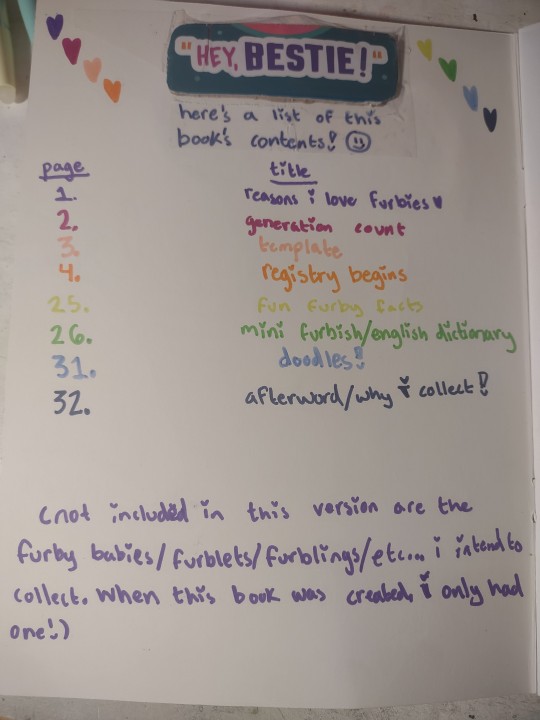 "HEY, BESTIE!"
here's a list of this
book's contents!
page title
1. reasons i love furbies
2. generation count
3. template
4. registry begins
25. fun furby facts
26. mini furbish/english dictionary
31. doodles!
32. afterword/why i collect!
(not included in this version are the
furby babies/furblets/furblings/etc... i intend to
collect. when this book was created, i only had
one!)